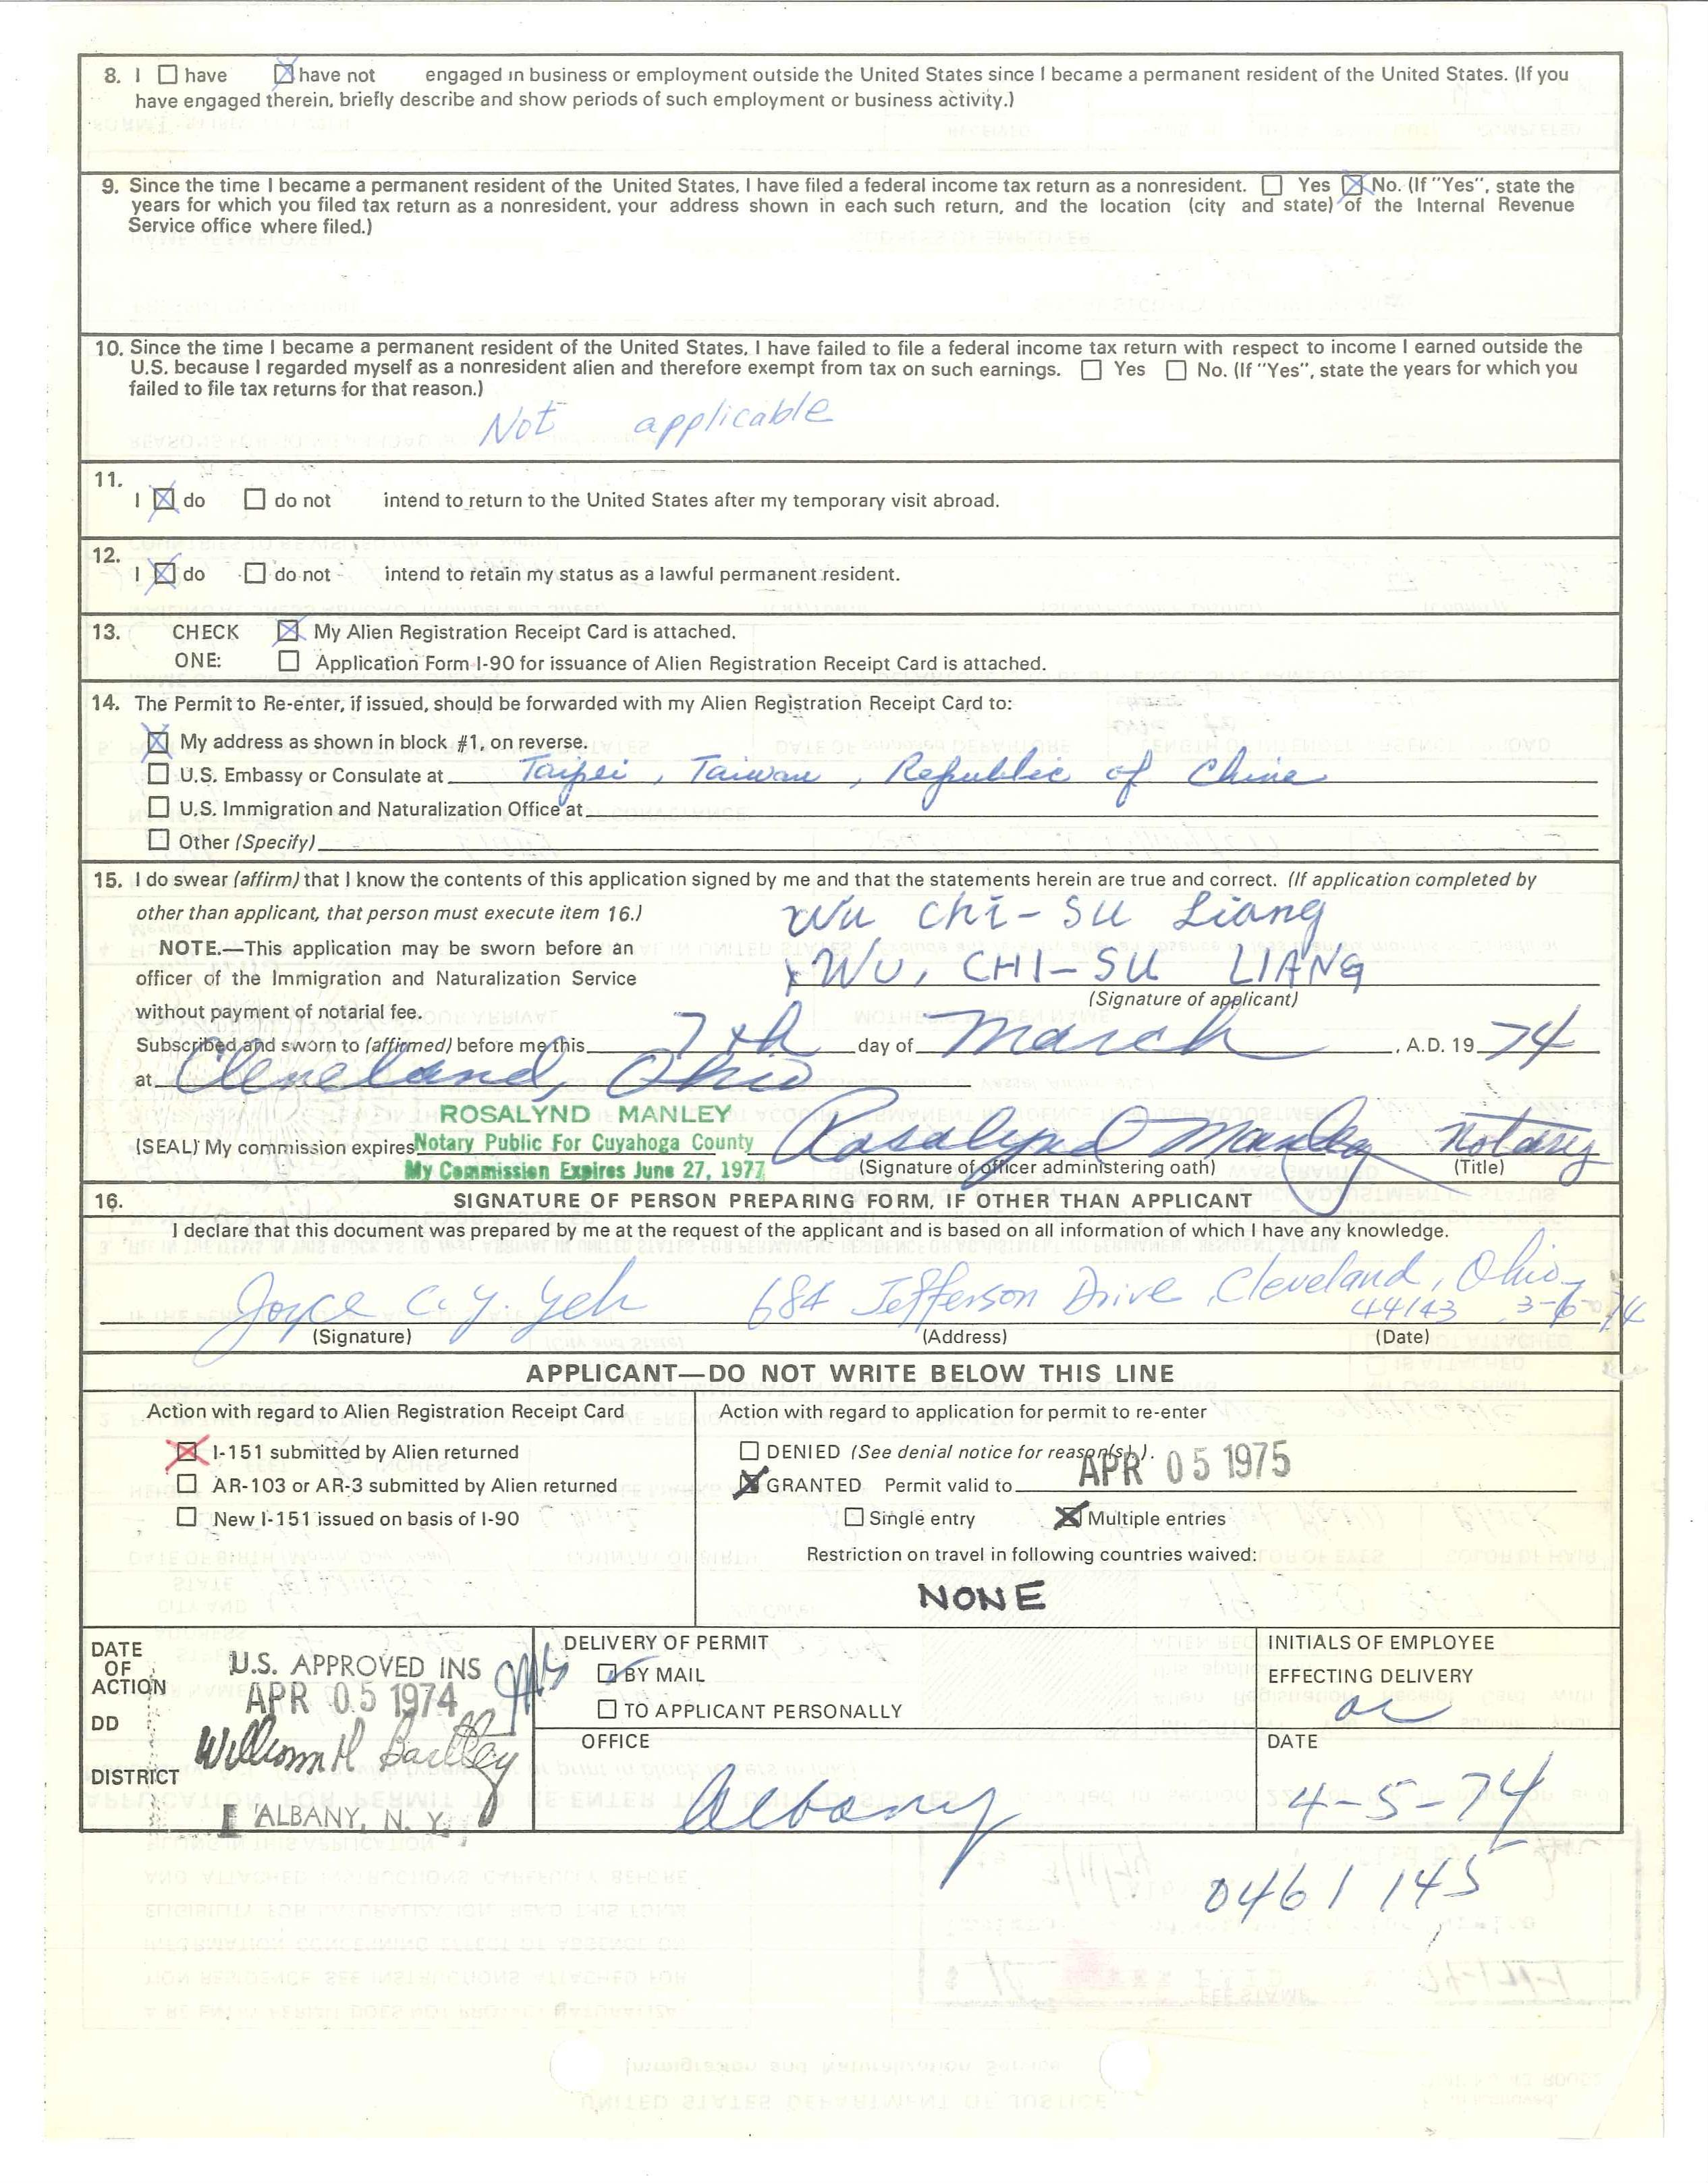 8. I ☐ have ☒ have not engaged in business or employment outside the United States since I became a permanent resident of the United States. (If you
have engaged therein, briefly describe and show periods of such employment or business activity.)
9. Since the time I became a permanent resident of the United States, I have filed a federal income tax return as a nonresident. ☐ Yes ☒ No. (If "Yes", state the
years for which you filed tax return as a nonresident, your address shown in each such return, and the location (city and state) of the Internal Revenue
Service office where filed.)
10. Since the time I became a permanent resident of the United States, I have failed to file a federal income tax return with respect to income I earned outside the
U.S. because I regarded myself as a nonresident alien and therefore exempt from tax on such earnings. ☐ Yes ☐ No. (If "Yes", state the years for which you
failed to file tax returns for that reason.)
Not applicable
11.
I ☒ do ☐ do not intend to return to the United States after my temporary visit abroad.
12.
I ☒ do ☐ do not intend to retain my status as a lawful permanent resident.
13. CHECK ☒ My Alien Registration Receipt Card is attached.
ONE: ☐ Application Form I-90 for issuance of Alien Registration Receipt Card is attached.
14. The Permit to Re-enter, if issued, should be forwarded with my Alien Registration Receipt Card to:
☒ My address as shown in block #1, on reverse.
☐ U.S. Embassy or Consulate at Taipei, Taiwan, Republic of China
☐ U.S. Immigration and Naturalization Office at
☐ Other (Specify)
15. I do swear (affirm) that I know the contents of this application signed by me and that the statements herein are true and correct. (If application completed by
other than applicant, that person must execute item 16.)
Wu Chi-Su Liang
NOTE.—This application may be sworn before an
officer of the Immigration and Naturalization Service
x WU, CHI-SU LIANG
(Signature of applicant)
without payment of notarial fee.
Subscribed and sworn to (affirmed) before me this 7th day of March, A.D. 19 74
at Cleveland, Ohio
ROSALYND MANLEY
(SEAL) My commission expires Notary Public For Cuyahoga County Rosalynd Manley Notary
My Commission Expires June 27, 1977 (Signature of officer administering oath) (Title)
16. SIGNATURE OF PERSON PREPARING FORM, IF OTHER THAN APPLICANT
I declare that this document was prepared by me at the request of the applicant and is based on all information of which I have any knowledge.
Joyce C. Y. Yeh 684 Jefferson Drive, Cleveland, Ohio
44143, 3-6-74
(Signature) (Address) (Date)
APPLICANT—DO NOT WRITE BELOW THIS LINE
Action with regard to Alien Registration Receipt Card
☒ I-151 submitted by Alien returned
☐ AR-103 or AR-3 submitted by Alien returned
☐ New I-151 issued on basis of I-90
Action with regard to application for permit to re-enter
☐ DENIED (See denial notice for reason(s).)
☒ GRANTED Permit valid to APR 05 1975
☐ Single entry ☒ Multiple entries
Restriction on travel in following countries waived:
NONE
DATE
OF
ACTION
DD
DISTRICT
U.S. APPROVED INS
APR 05 1974
William H Bartley
ALBANY, N. Y.
DELIVERY OF PERMIT
☑ BY MAIL
☐ TO APPLICANT PERSONALLY
OFFICE
Albany
INITIALS OF EMPLOYEE
EFFECTING DELIVERY
DATE
4-5-74
0461145